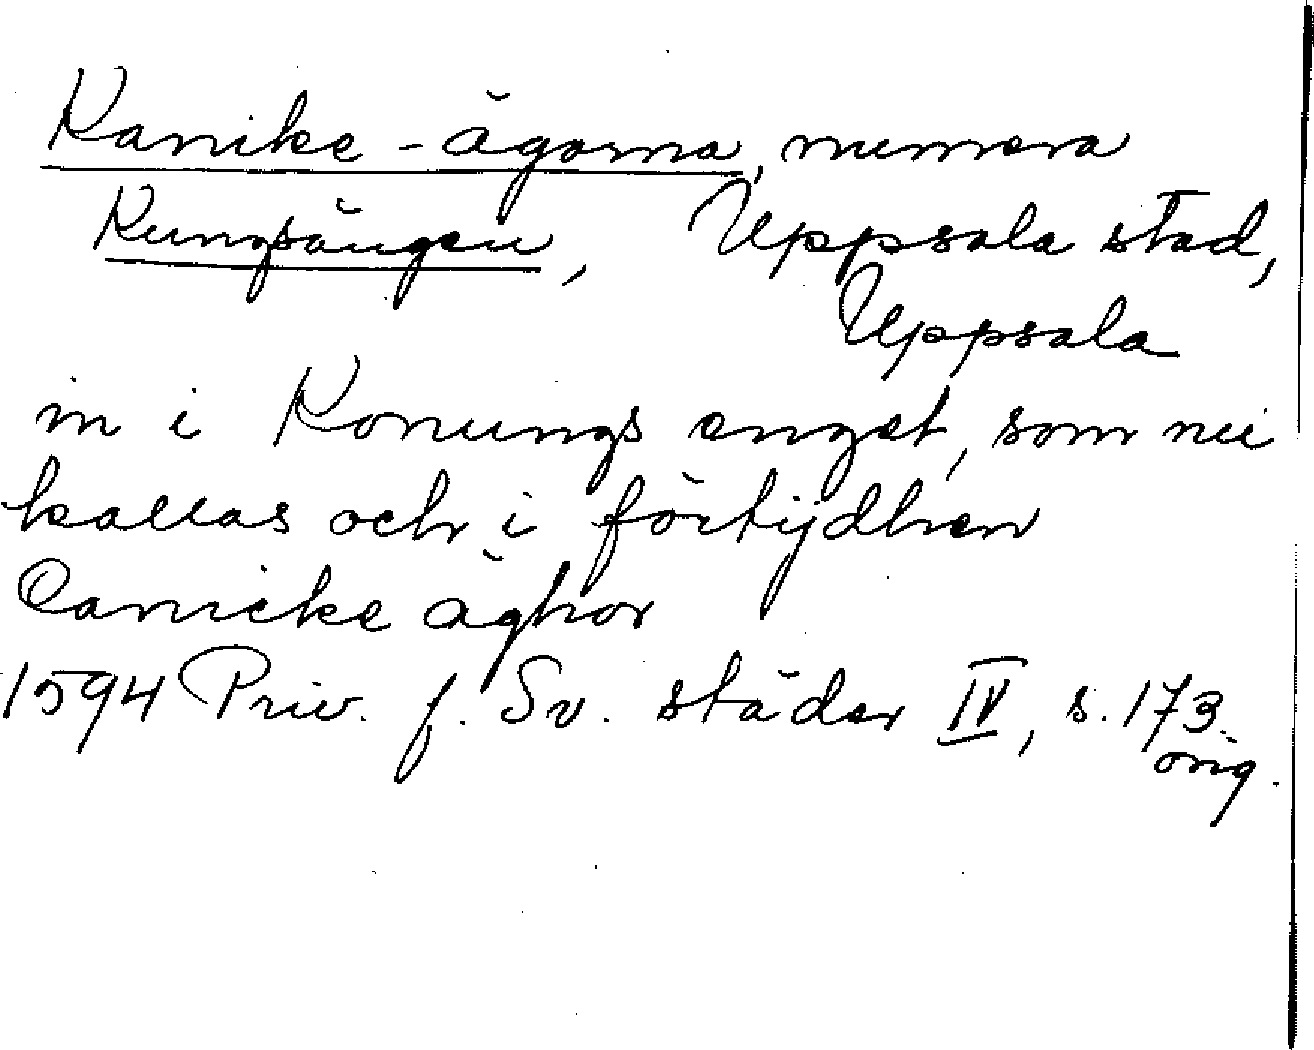 Kanike-ägorna, numera
Kungsängen, Uppsala stad,
Uppsala
in i Konungs enget, som nu
kallas och i förtijdhen
Canicke äghor
1594 Priv. f. Sv. städer IV, s. 173.
orig.